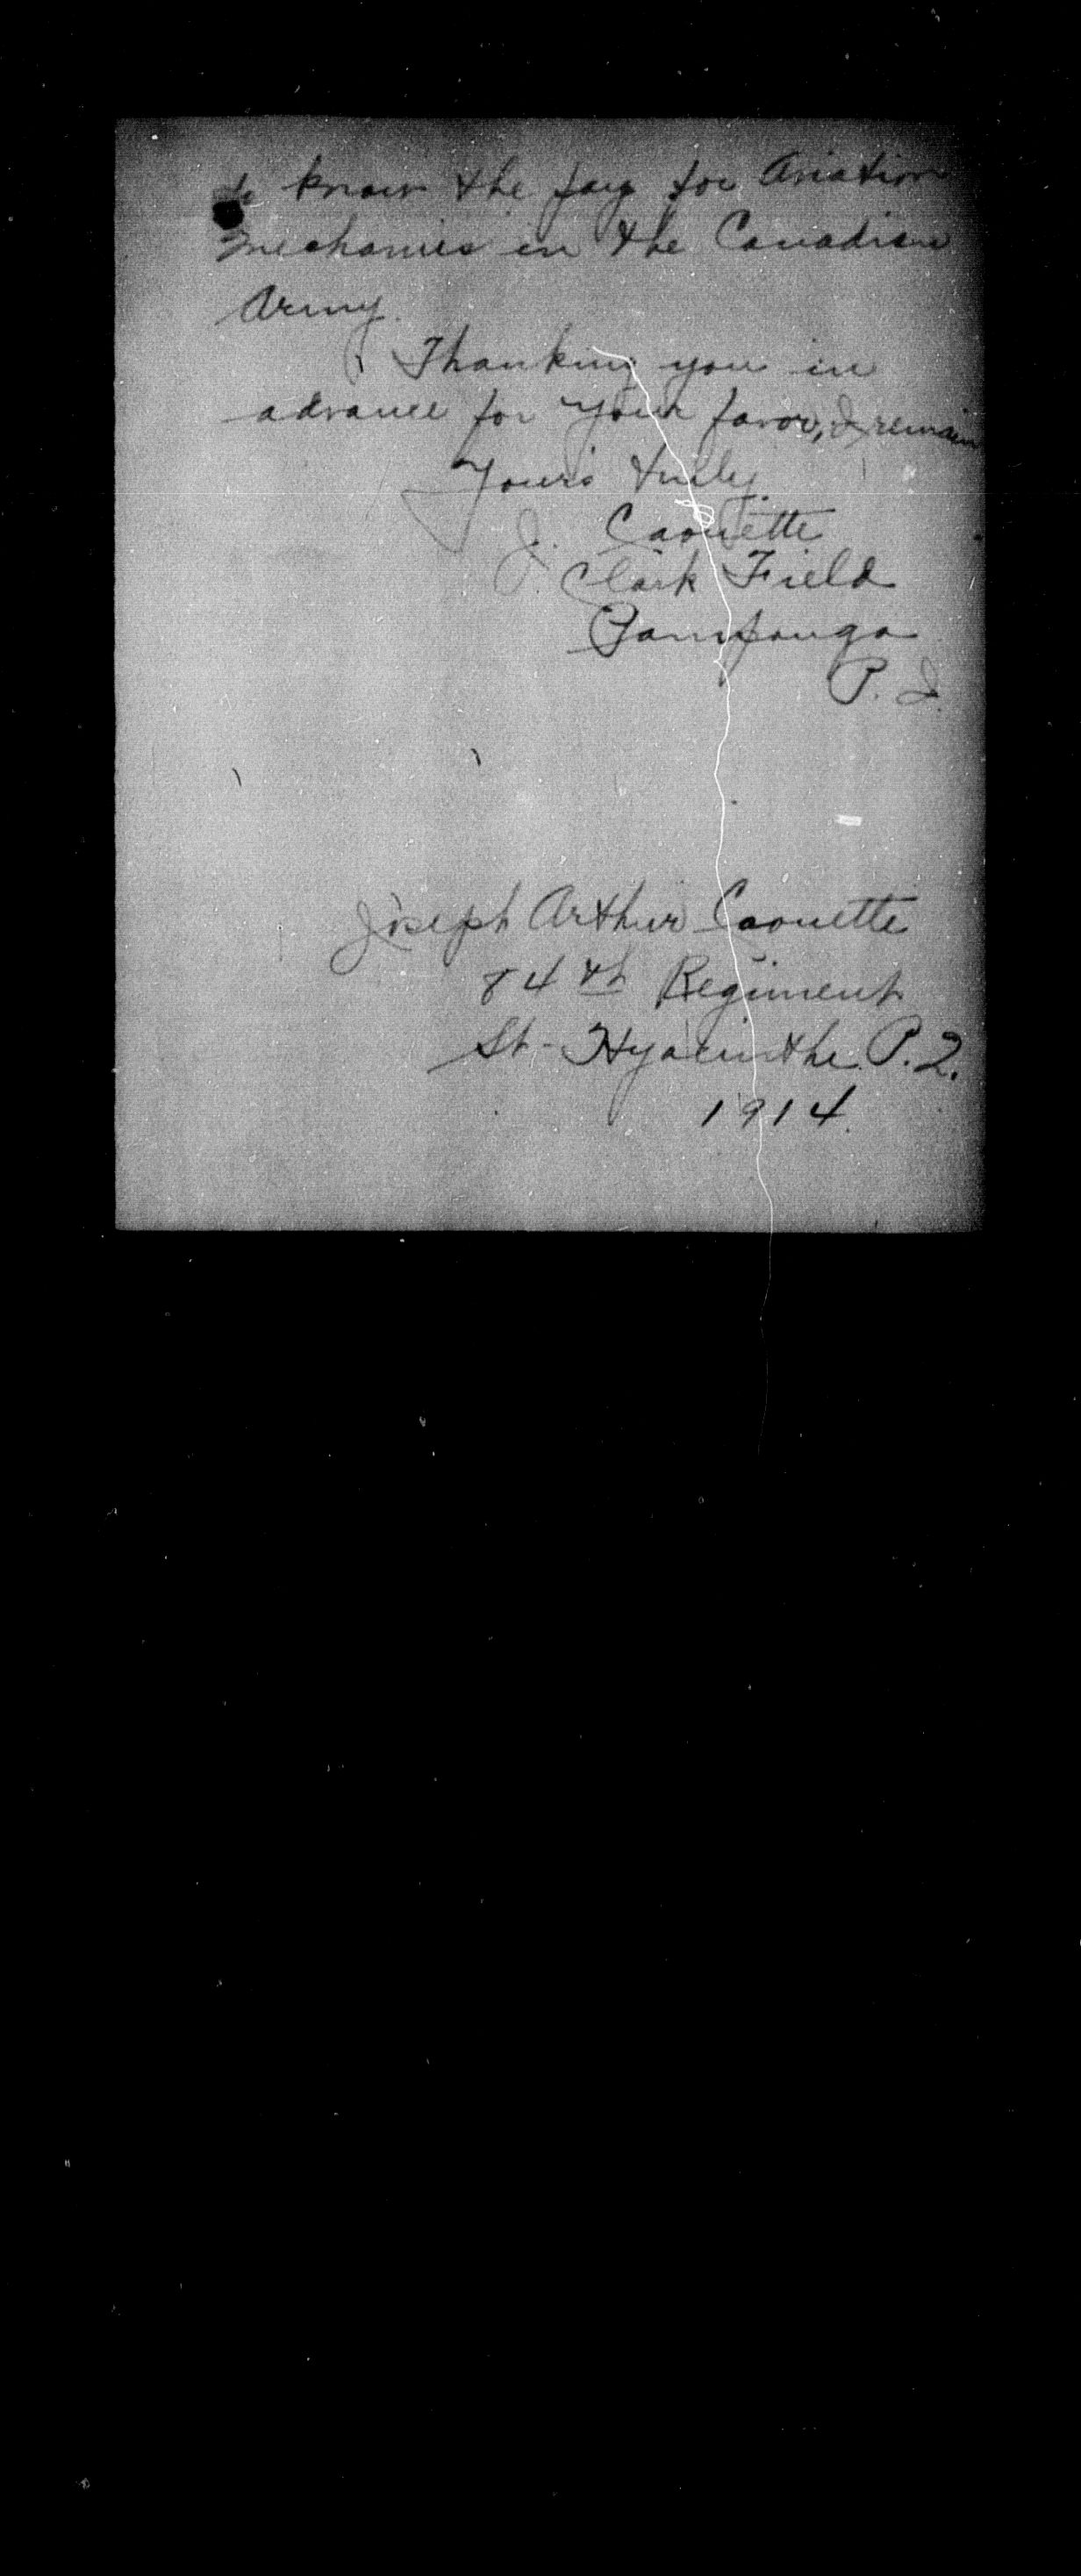 to know the pay for Aviation
Mechanics in the Canadian
Army.
Thanking you in
advance for your favor, I remain
Yours truly
J. Caouette
Clark Field
Pampanga
P. I.
Joseph Arthur Caouette
84th Regiment
St-Hyacinthe P.Q.
1914.